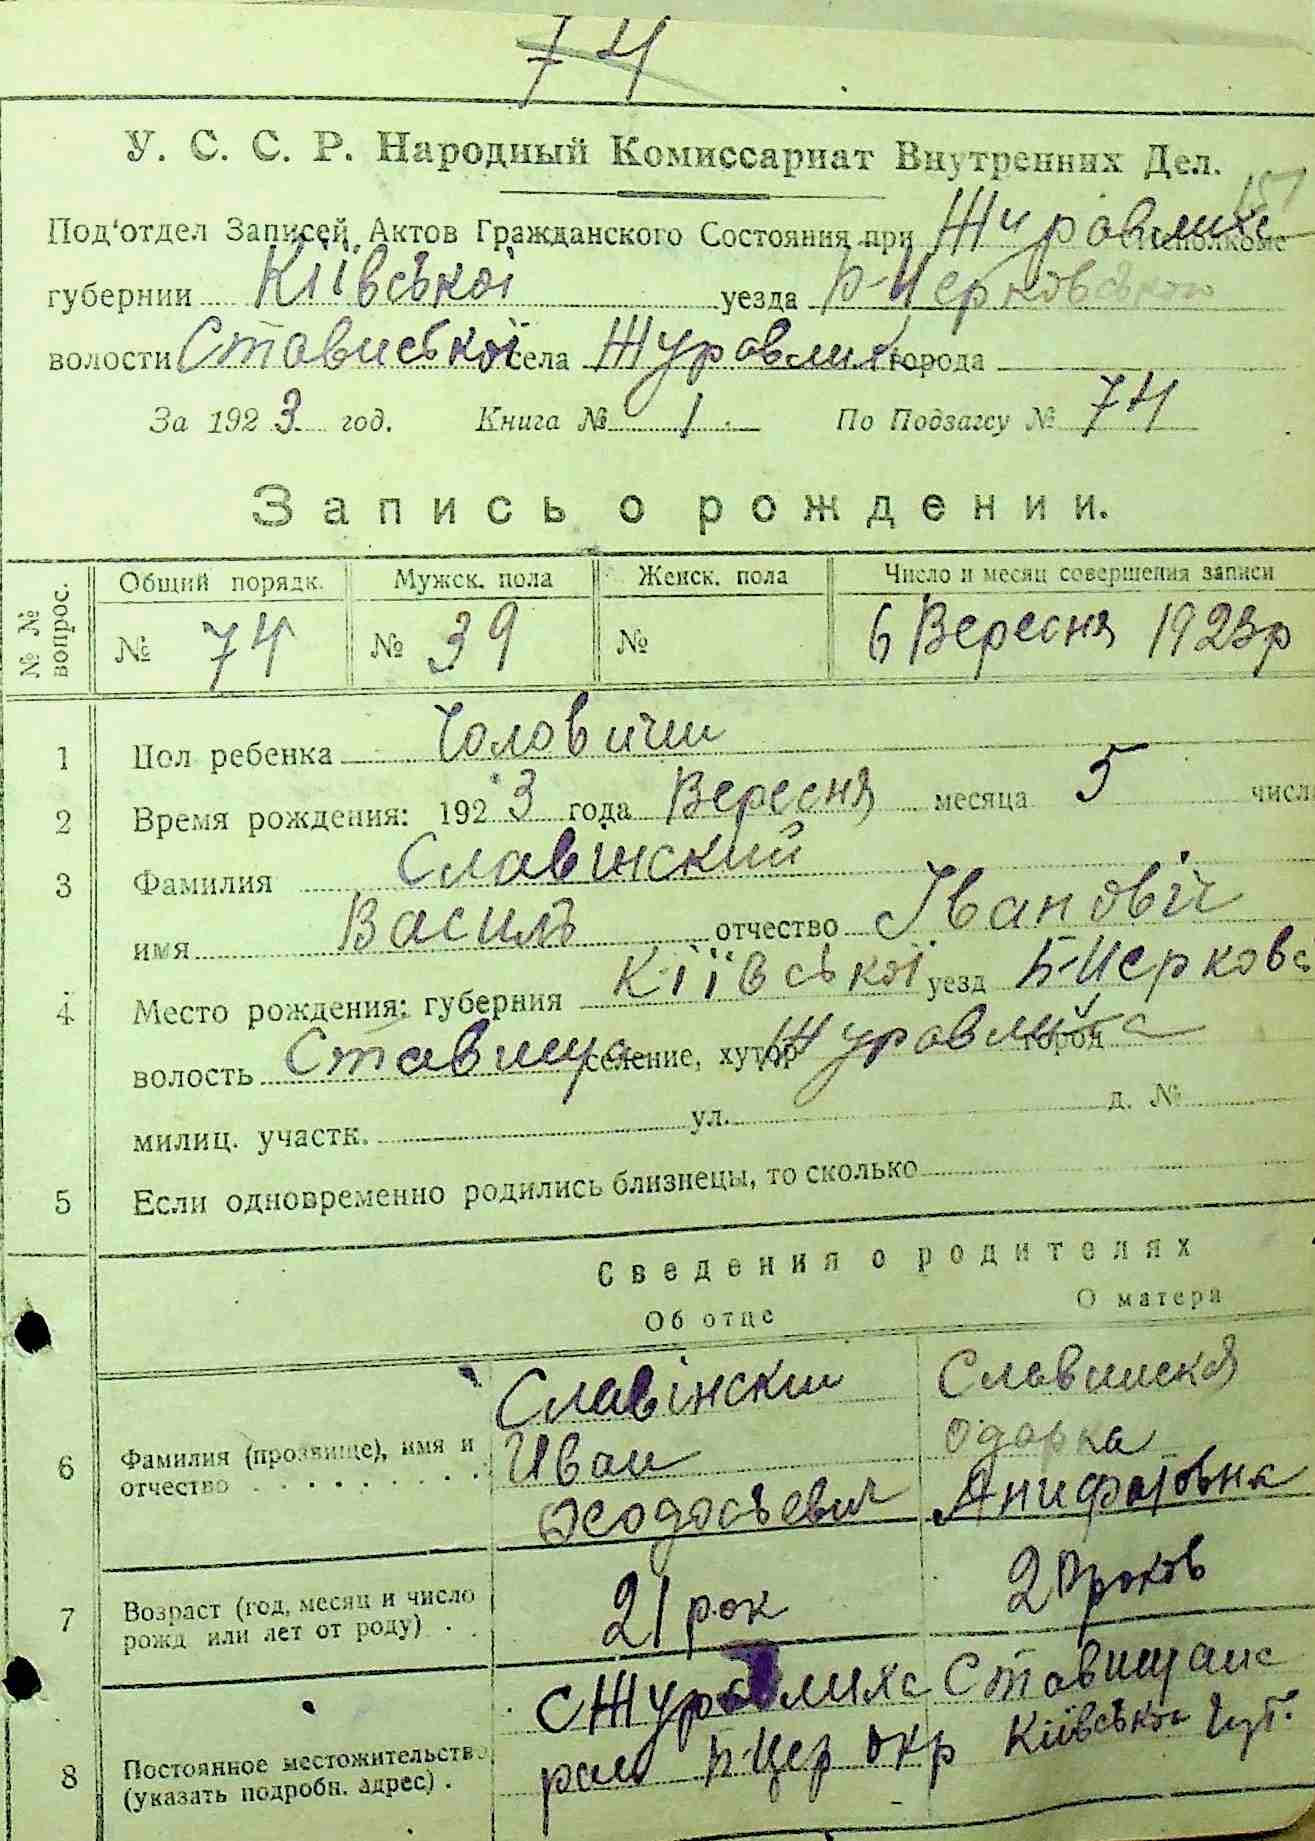 74
У. С. С. Р. Народный Комиссариат Внутренних Дел.
Под'отдел Записей Актов Гражданского Состояния при Журавлихе исполкоме
губернии Кіївської уезда Б-Черковської
волости Стависької села Журавлиха города
За 1923 год. Книга № 1 По Подзагсу № 74
Запись о рождении.
№ № вопрос. Общий порядк. Мужск. пола Женск. пола Число и месяц совершения записи
№ 74 № 39 № 6 Вересня 1923р
1 Пол ребенка Чоловичи
2 Время рождения: 1923 года Вересня месяца 5 числ
3 Фамилия Славінский
имя Василь отчество Івановіч
4 Место рождения: губерния Кіївської уезд Б-Черковс
волость Ставища селение, хутор Журавлиха город
милиц. участк. ул. д. №
5 Если одновременно родились близнецы, то сколько
Сведения о родителях
Об отце О матери
6 Фамилия (прозвище), имя и отчество
Славінский Славинская
Иван Одарка
Феодосьевич Анифатовна
7 Возраст (год, месяц и число рожд или лет от роду) 21 рок 20 роков
8 Постоянное местожительство (указать подробн. адрес)
с Журавлиха Ставищанс
рай Б-Цер окр Кіївської Губ.